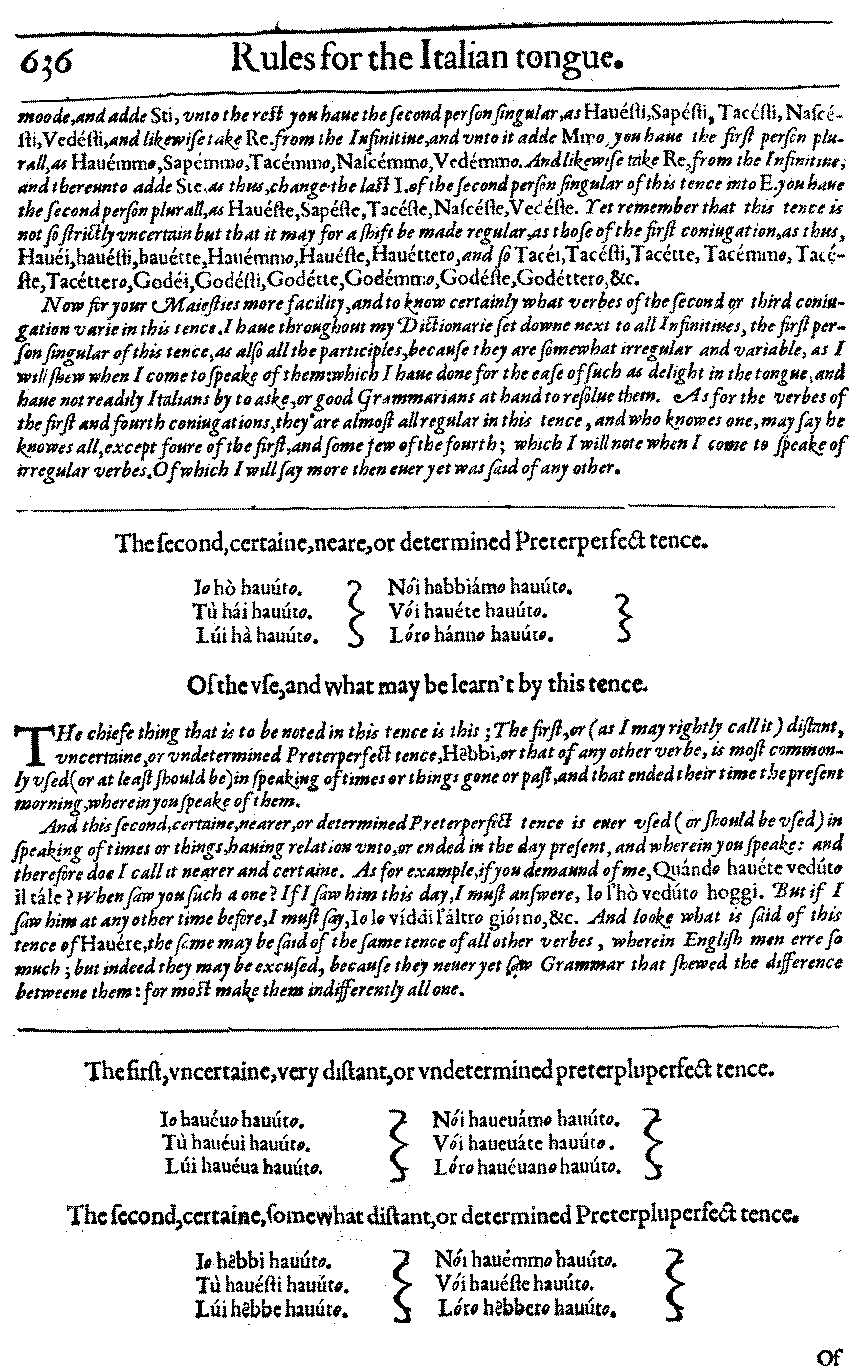 636 Rules for the Italian tongue.
moode,and adde Sti, vnto the rest you haue the second person singular,as Hauésti,Sapésti, Tacésti, Nascé-
sti,Vedésti,and likewise take Re.from the Infinitiue,and vnto it adde Mmo you haue the first person plu-
rall,as Hauémmo,Sapémmo,Tacémmo,Nascémmo,Vedémmo.And likewise take Re,from the Infinitiue,
and thereunto adde Ste.as thus,change the last I.of the second person singular of this tence into E.you haue
the second person plurall,as Hauéste,Sapéste,Tacéste,Nascéste,Vedéste. Yet remember that this tence is
not so strictly vncertain but that it may for a shift be made regular,as those of the first coniugation,as thus,
Hauéi,hauésti,hauétte,Hauémmo,Hauéste,Hauéttero,and so Tacéi,Tacésti,Tacétte, Tacémmo, Tacé-
ste,Tacéttero,Godéi,Godésti,Godétte,Godémmo,Godéste,Godéttero,&c.
Now fir your Maiesties more facility,and to know certainly what verbes of the second or third coniu-
gation varie in this tence.I haue throughout my Dictionarie set downe next to all Infinitiues, the first per-
son singular of this tence,as also all the participles,because they are somewhat irregular and variable, as I
will shew when I come to speake of them:which I haue done for the ease of such as delight in the tongue,and
haue not readily Italians by to aske,or good Grammarians at hand to resolue them. As for the verbes of
the first and fourth coniugations,they are almost all regular in this tence , and who knowes one, may say he
knowes all,except foure of the first,and some few of the fourth; which I will note when I come to speake of
irregular verbes.Of which I will say more then euer yet was said of any other.
The second,certaine,neare,or determined Preterperfect tence.
Io hò hauúto. Nói habbiámo hauúto.
Tù hái hauúto. Vói hauéte hauúto.
Lúi hà hauúto. Lóro hánno hauúto.
Of the vse,and what may be learn't by this tence.
THe chiefe thing that is to be noted in this tence is this ; The first,or (as I may rightly call it) distant,
vncertaine,or vndetermined Preterperfect tence,Hêbbi,or that of any other verbe, is most common-
ly vsed(or at least should be)in speaking of times or things gone or past,and that ended their time the present
morning,wherein you speake of them.
And this second,certaine,nearer,or determined Preterperfect tence is euer vsed (or should be vsed) in
speaking of times or things,hauing relation vnto,or ended in the day present, and wherein you speake: and
therefore doe I call it nearer and certaine. As for example,if you demaund of me,Quándo hauéte vedúto
il tále ? When saw you such a one? If I saw him this day,I must answere, Io l'hò vedúto hoggi. But if I
saw him at any other time before,I must say,Io lo víddi l'áltro giórno,&c. And looke what is said of this
tence of Hauére,the same may be said of the same tence of all other verbes , wherein English men erre so
much ; but indeed they may be excused, because they neuer yet saw Grammar that shewed the difference
betweene them: for most make them indifferently all one.
The first,vncertaine,very distant,or vndetermined preterpluperfect tence.
Io hauéuo hauúto. Nói haueuámo hauúto.
Tù hauéui hauúto. Vói haueuáte hauúto .
Lúi hauéua hauúto. Lóro hauéuano hauúto.
The second,certaine,somewhat distant,or determined Preterpluperfect tence.
Io hêbbi hauúto. Nói hauémmo hauúto.
Tù hauésti hauúto. Vói hauéste hauúto.
Lúi hêbbe hauúto. Lóro hêbbero hauúto.
Of